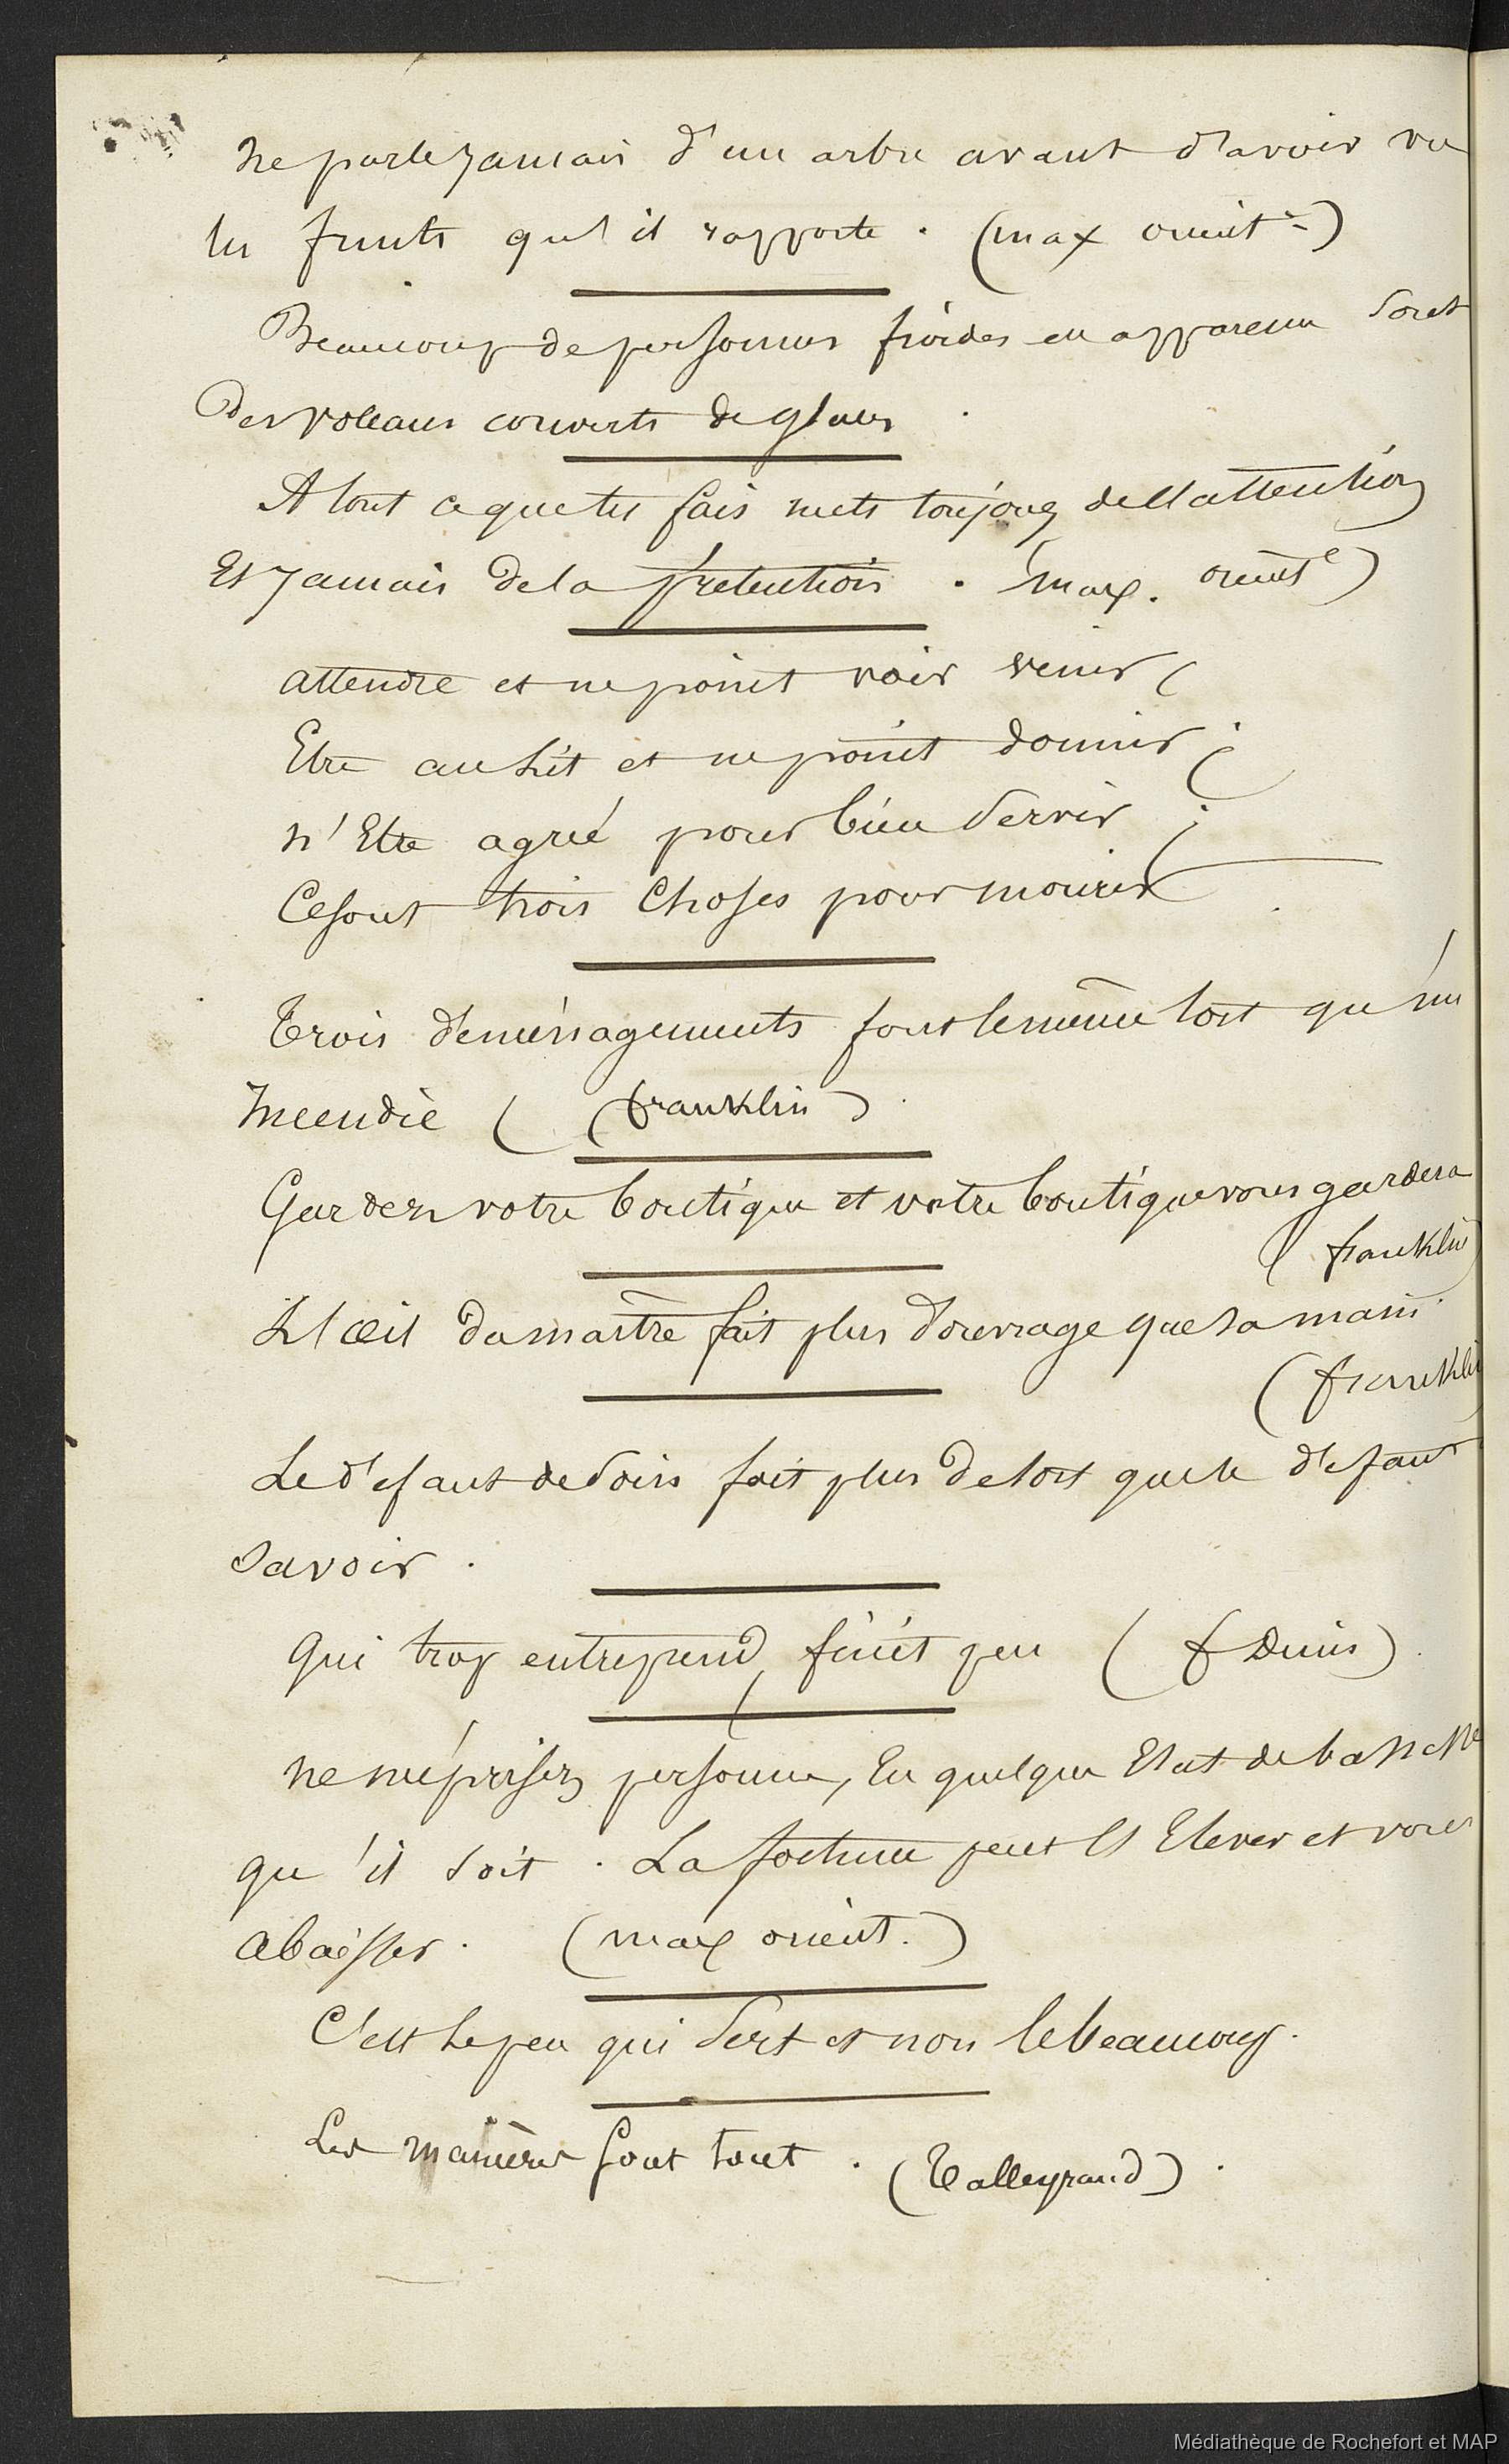 ne parle jamais d'un arbre avant d'avoir vu
les fruits qu'il rapporte. (max orient.)
Beaucoup de personnes froides en apparence sont
des volcans couverts de glaces.
A tout ce que tu fais mets toujours de l'attention
Et jamais de la prétention. (max. orient.)
attendre et ne point voir venir,
Etre au lit et ne point dormir;
n'Etre agréé pour bien servir;
Ce sont trois choses pour mourir.
Trois déménagements font le même tort qu'un
Incendie (franklin)
Gardez votre boutique et votre boutique vous gardera
(franklin)
L'œil du maître fait plus d'ouvrage que sa main.
(franklin
Le défaut de soin fait plus de tort que le défaut
savoir.
Qui trop entreprend, finit peu (f Denis)
ne méprisez personne, En quelque Etat de bassesse
qu'il soit. La fortune peut l'Elever et vous
abaisser. (max orient.)
C'est le peu qui sert et non le beaucoup.
Les manières font tout. (Talleyrand).
Médiathèque de Rochefort et MAP